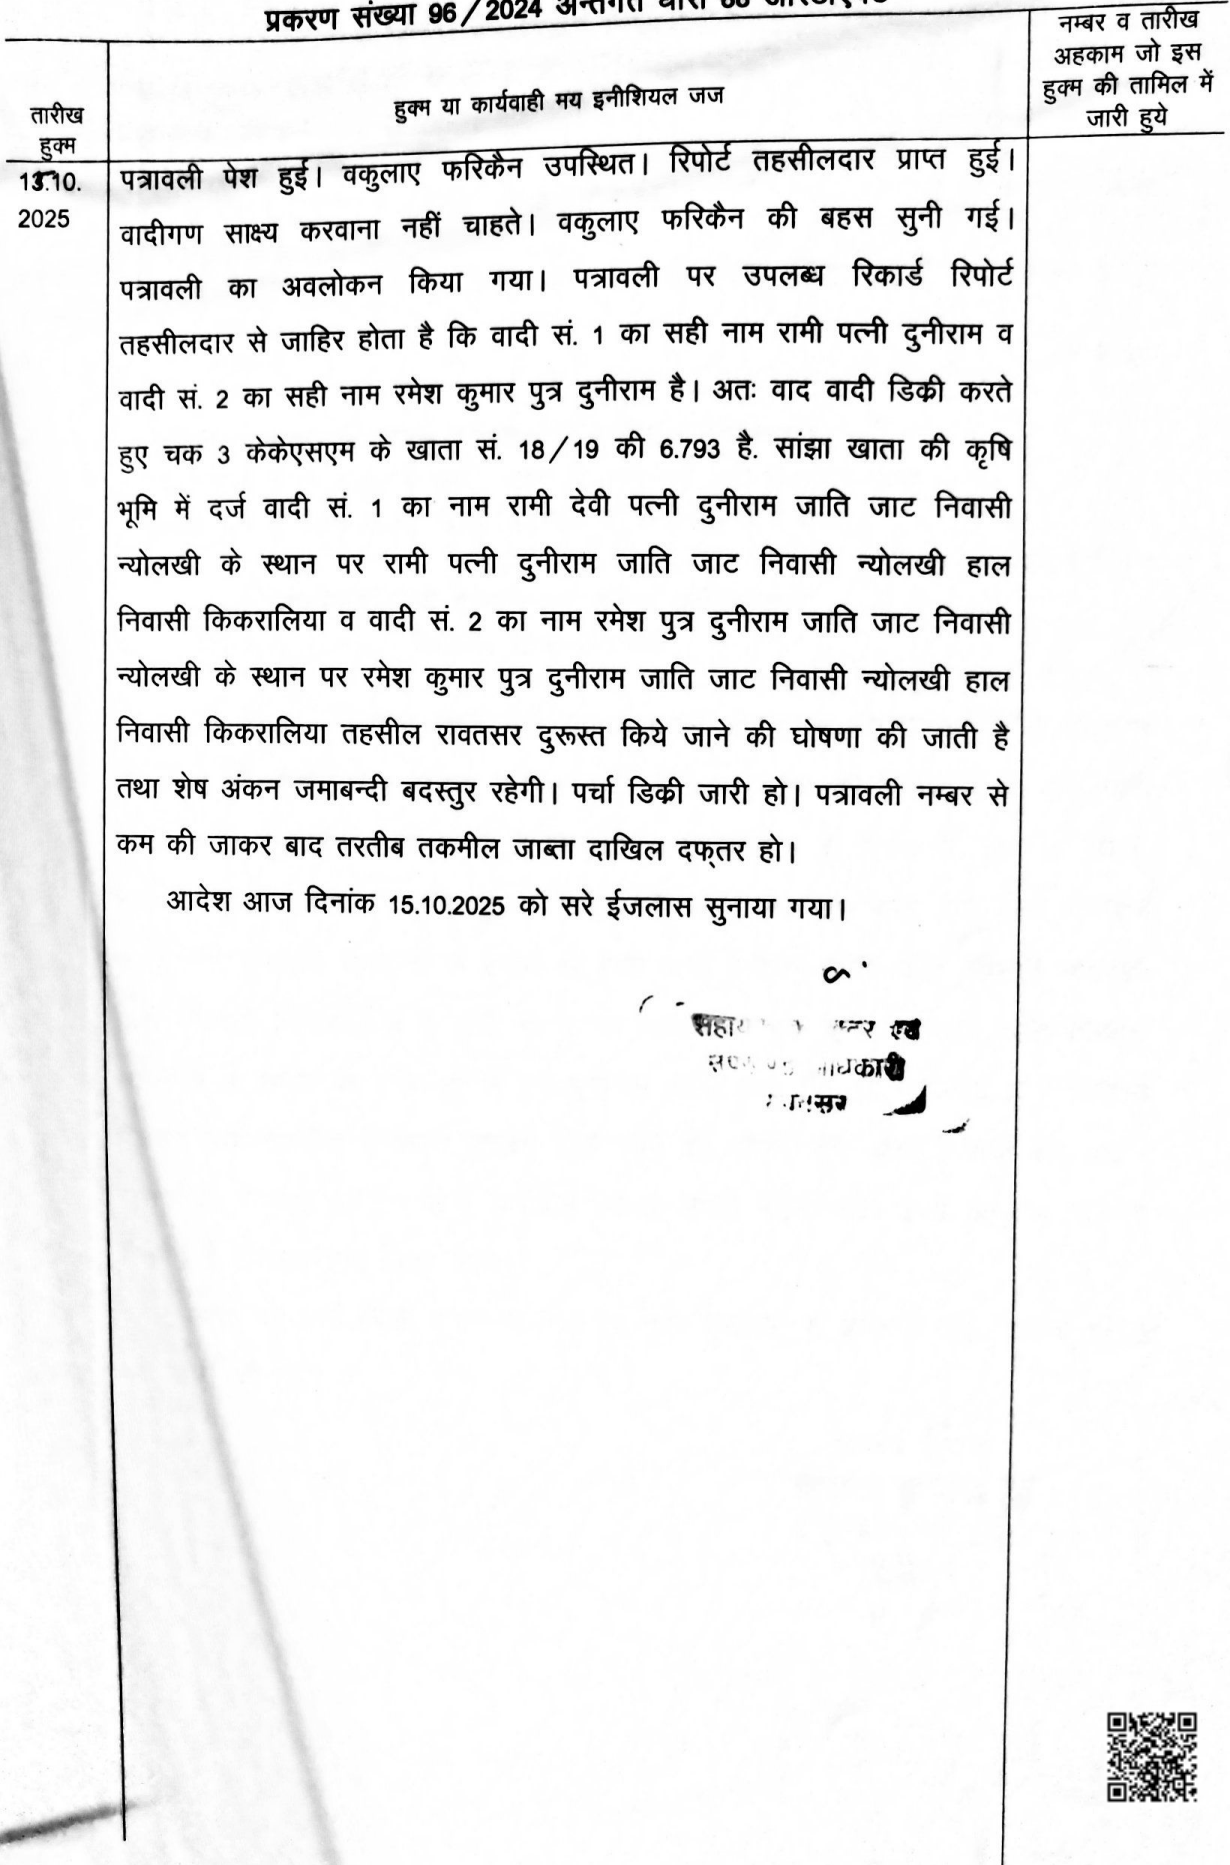 प्रकरण संख्या 96/2024 अन्तर्गत धारा 88
नम्बर व तारीख
अहकाम जो इस
हुक्म की तामिल में
जारी हुये
हुक्म या कार्यवाही मय इनीशियल जज
तारीख
हुक्म
15.10.
2025
पत्रावली पेश हुई। वकुलाए फरिकैन उपस्थित। रिपोर्ट तहसीलदार प्राप्त हुई।
वादीगण साक्ष्य करवाना नहीं चाहते। वकुलाए फरिकैन की बहस सुनी गई।
पत्रावली का अवलोकन किया गया। पत्रावली पर उपलब्ध रिकार्ड रिपोर्ट
तहसीलदार से जाहिर होता है कि वादी सं. 1 का सही नाम रामी पत्नी दुनीराम व
वादी सं. 2 का सही नाम रमेश कुमार पुत्र दुनीराम है। अतः वाद वादी डिक्री करते
हुए चक 3 केकेएसएम के खाता सं. 18/19 की 6.793 है. सांझा खाता की कृषि
भूमि में दर्ज वादी सं. 1 का नाम रामी देवी पत्नी दुनीराम जाति जाट निवासी
न्योलखी के स्थान पर रामी पत्नी दुनीराम जाति जाट निवासी न्योलखी हाल
निवासी किकरालिया व वादी सं. 2 का नाम रमेश पुत्र दुनीराम जाति जाट निवासी
न्योलखी के स्थान पर रमेश कुमार पुत्र दुनीराम जाति जाट निवासी न्योलखी हाल
निवासी किकरालिया तहसील रावतसर दुरूस्त किये जाने की घोषणा की जाती है
तथा शेष अंकन जमाबन्दी बदस्तुर रहेगी। पर्चा डिक्री जारी हो। पत्रावली नम्बर से
कम की जाकर बाद तरतीब तकमील जाब्ता दाखिल दफ्तर हो।
आदेश आज दिनांक 15.10.2025 को सरे ईजलास सुनाया गया।